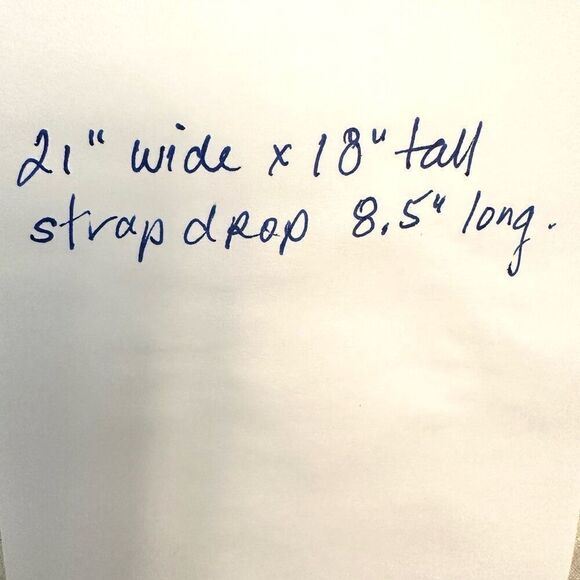 21" wide x 18" tall
strap drop 8.5" long.